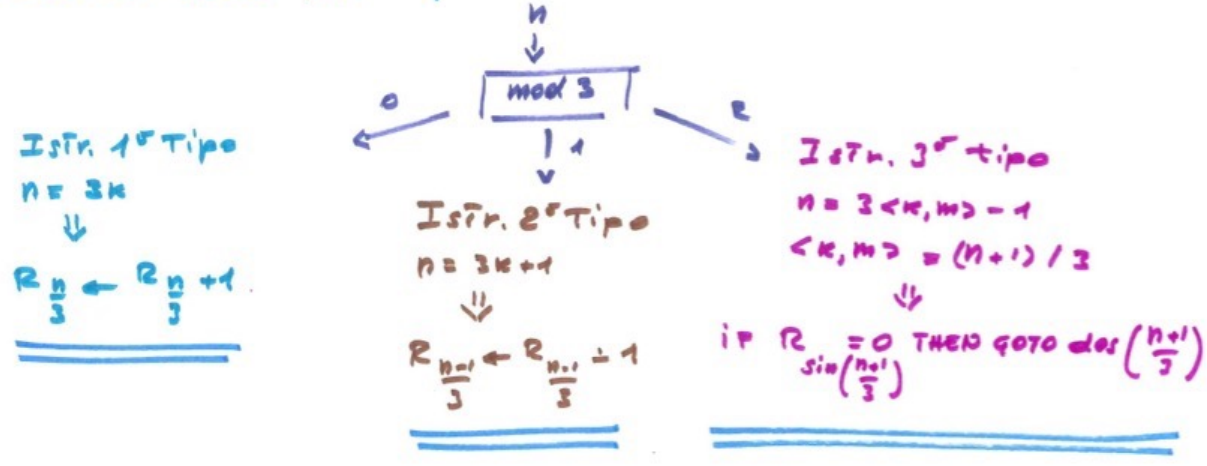 n
mod 3
0
1
2
Istr. 1º Tipo
n = 3k
⇓
R n/3 ← R n/3 + 1.
Istr. 2º Tipo
n = 3k+1
⇓
R n-1/3 ← R n-1/3 ∸ 1
Istr. 3º tipo
n = 3<k,m> - 1
<k,m> = (n+1)/3
⇓
IF R sin(n+1/3) = 0 THEN GOTO des(n+1/3)